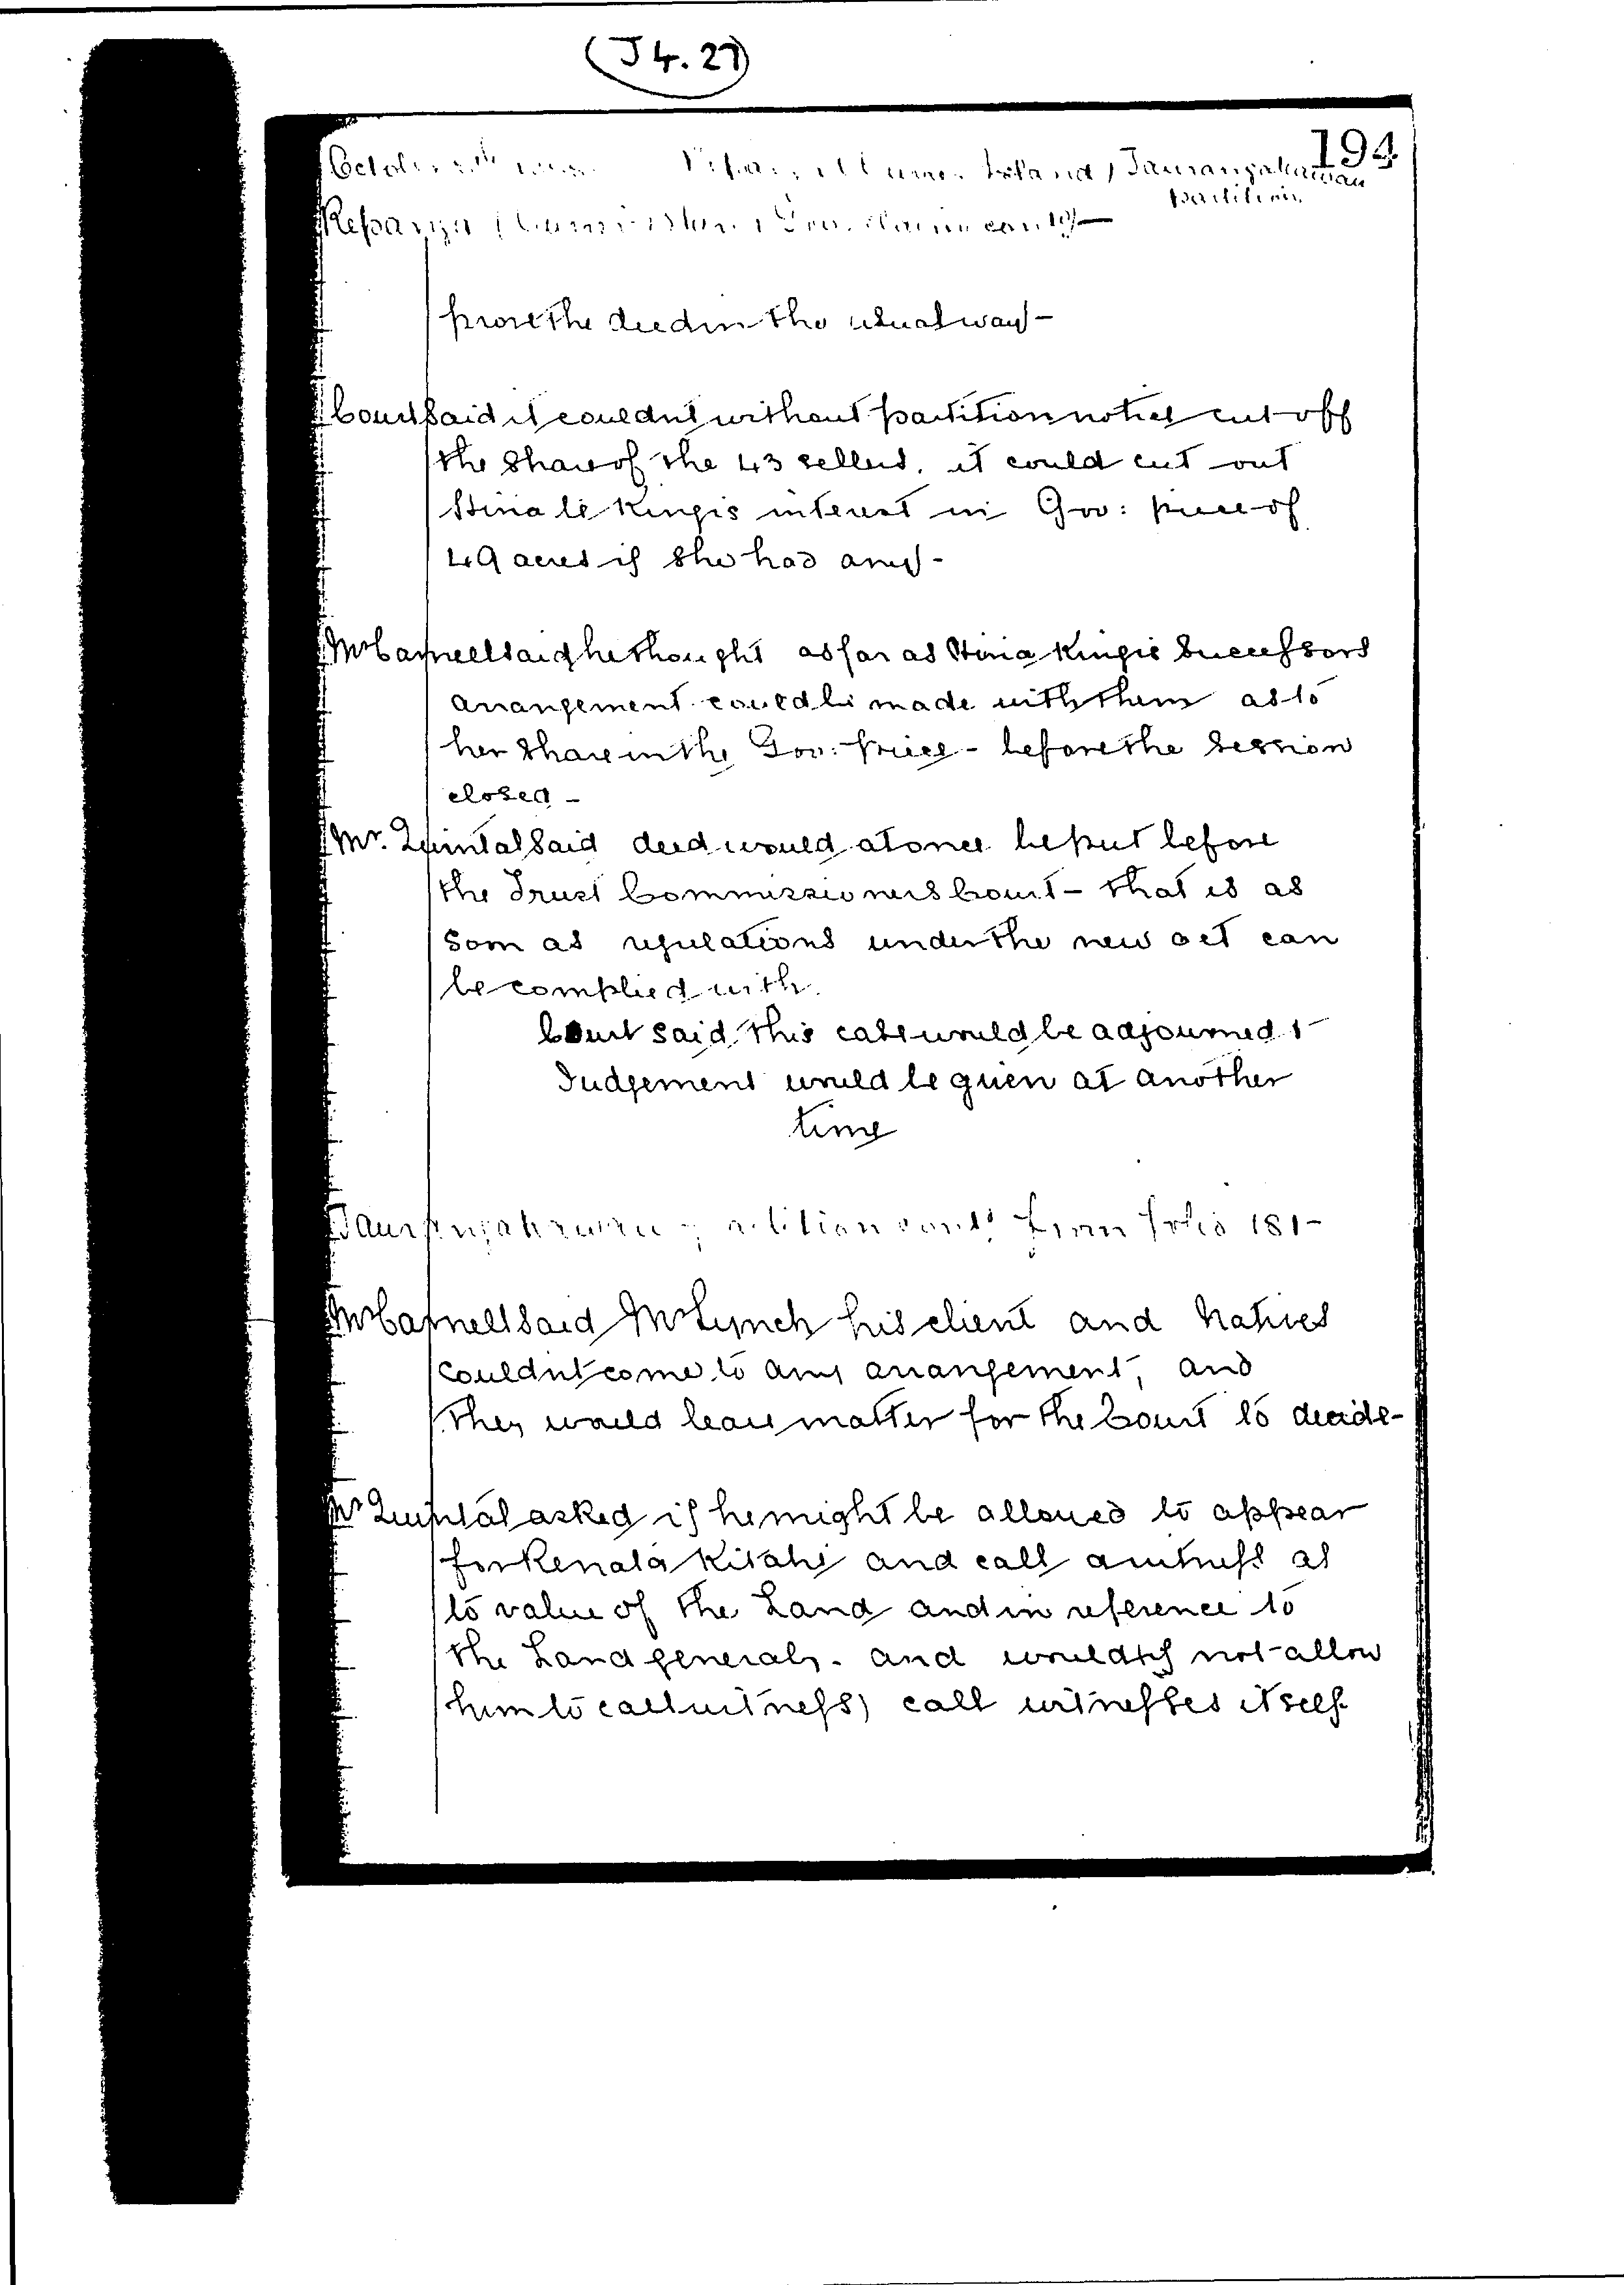 (J 4. 27)
194
October
Island / Taurangakawau
Partition
Repanga
prove the deed in the usual way -
Court said it couldnt without partition notice cut off
the share of the 43 sellers, it could cut out
Hina te Kingis interest in Gov: piece of
49 acres if she had any -
Mr Campell said he thought as far as Hina Kingis Successors
arrangement could be made with them as to
her share in the Gov: piece - before the session
closed -
Mr. Quintal Said deed would at once be put before
the Trust Commissioners Court - that is as
soon as regulations under the new act can
be complied with.
Court said this case would be adjourned &
Judgement would be given at another
time
Taurangakawau partition contd from folio 181 -
Mr Campell said Mr Lynch his client and Natives
couldnt come to any arrangement, and
they would leave matter for the Court to decide -
Mr Quintal asked if he might be allowed to appear
for Renata Kitahi and call a witness as
to value of the Land and in reference to
the Land generaly. and would (if not allow
him to call witness) call witnesses itself.